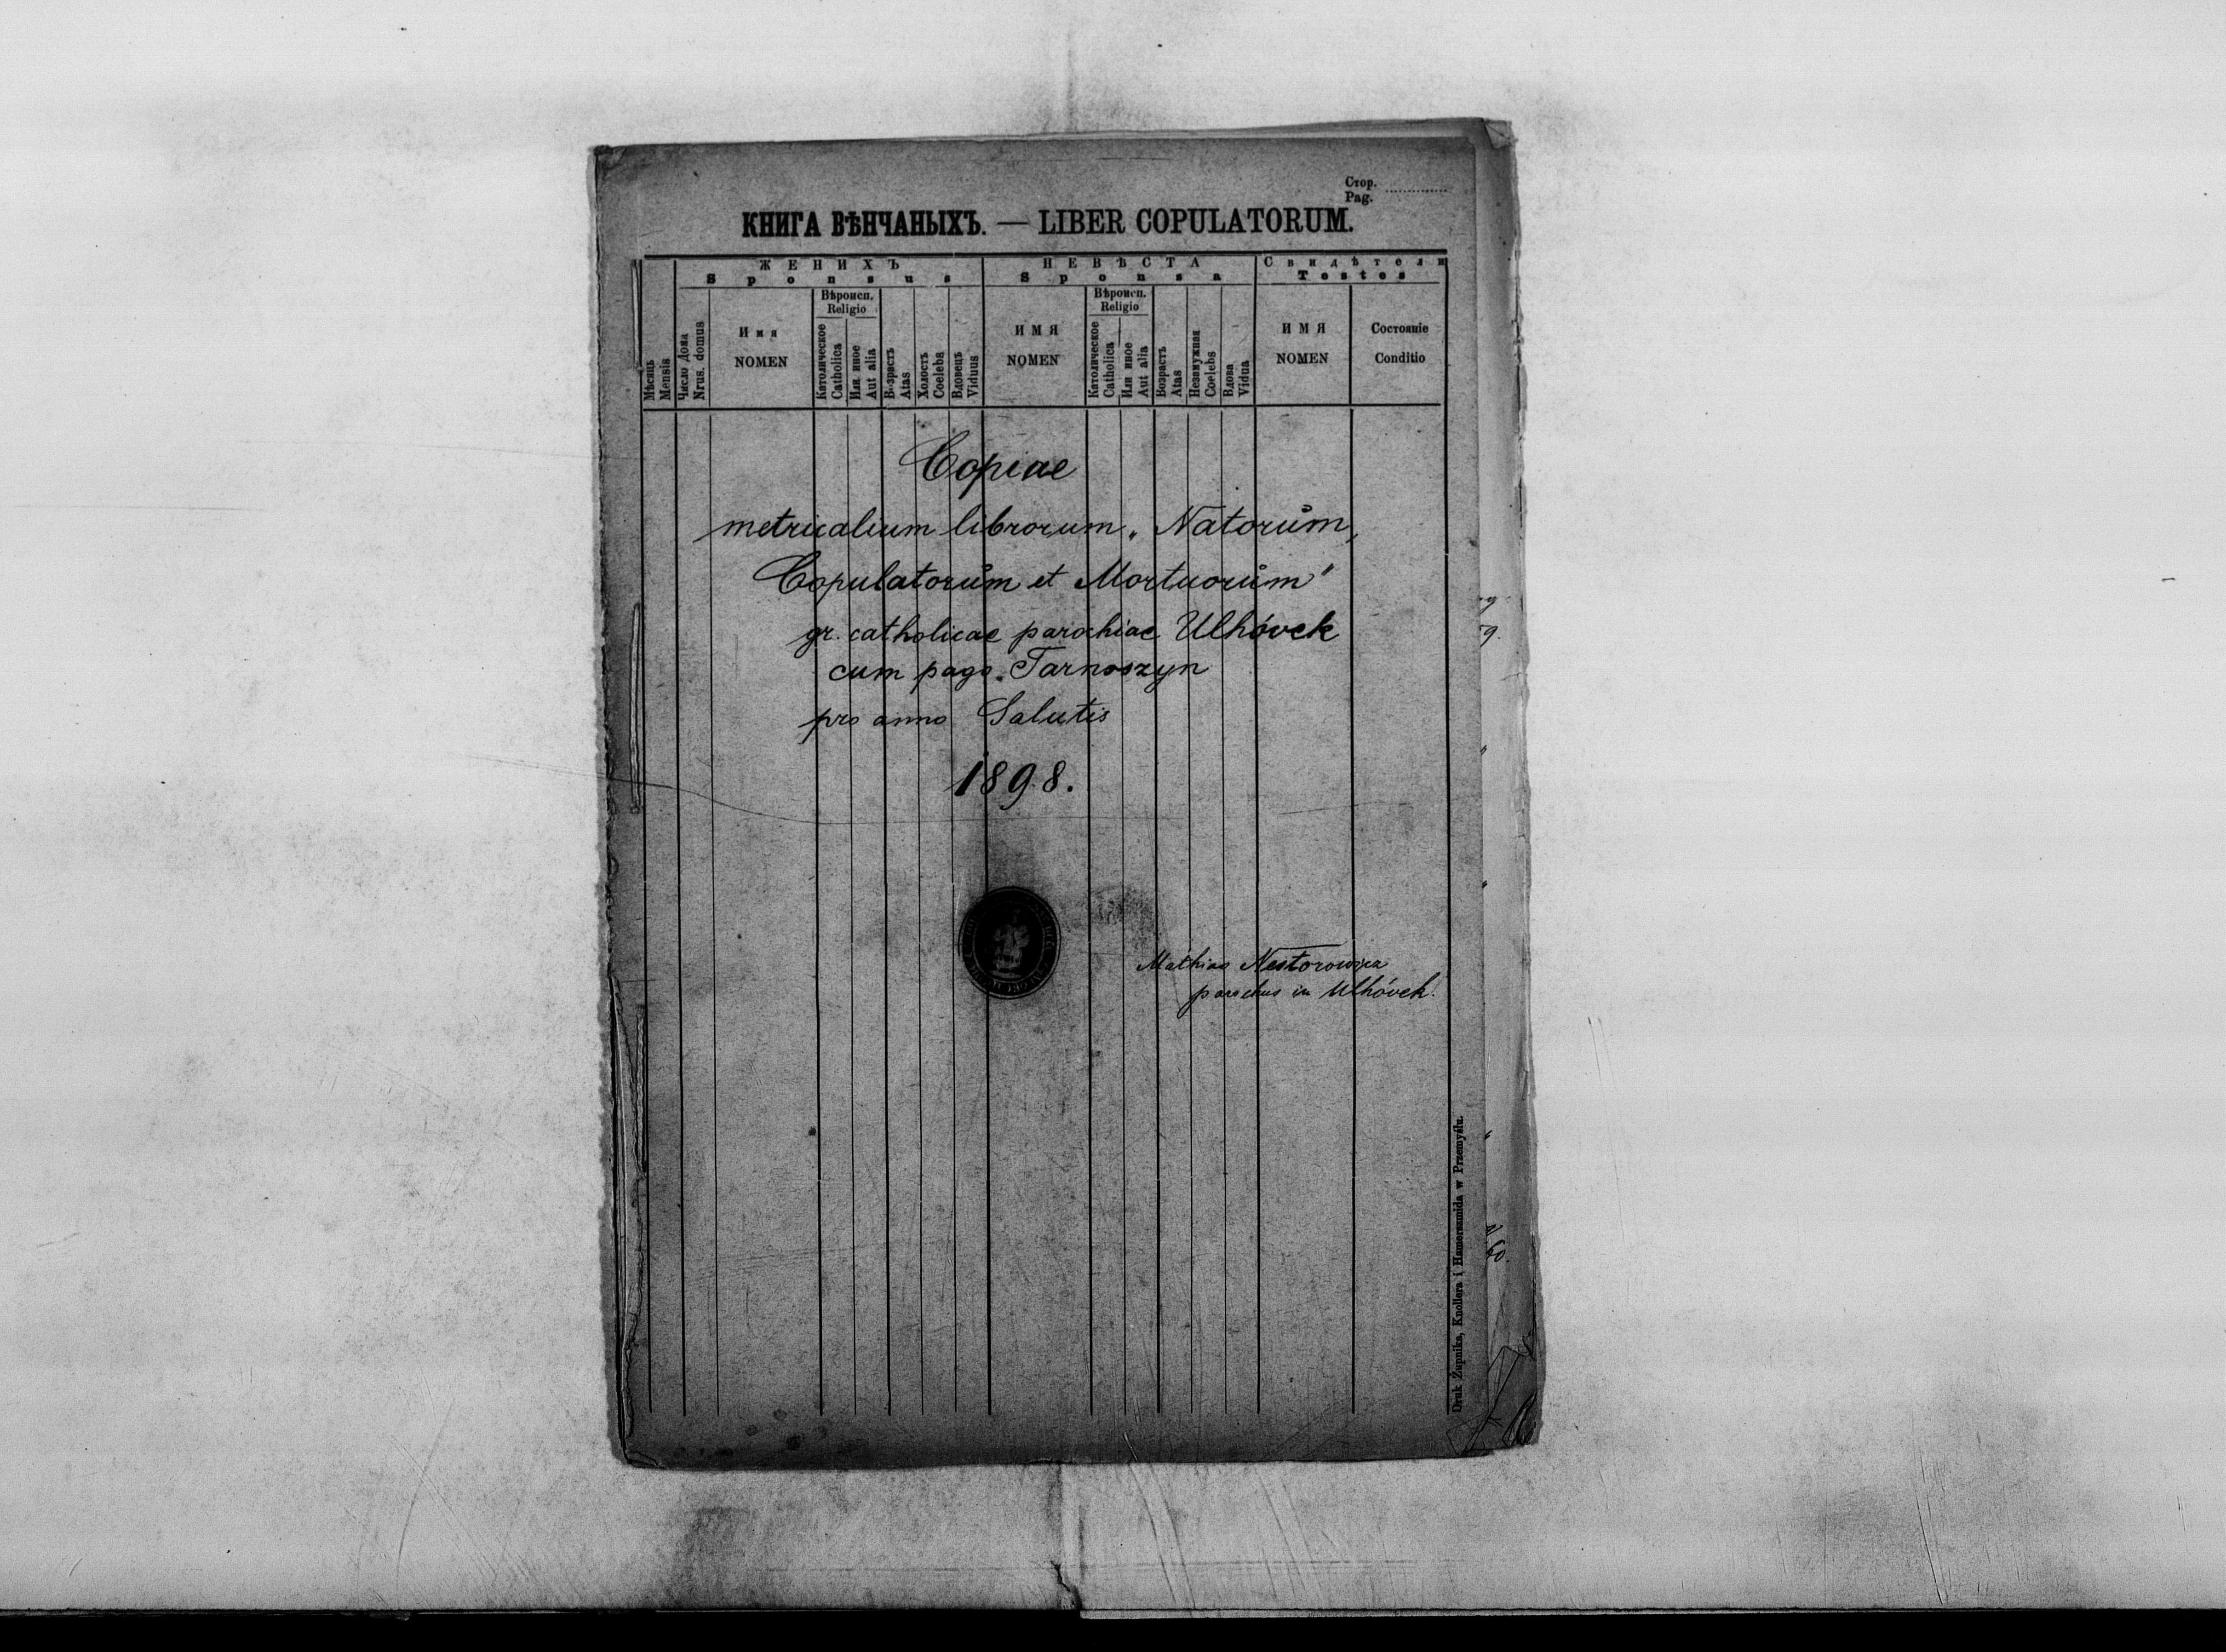 Стор.
Pag.
КНИГА ВѢНЧАНЫХЪ. — LIBER COPULATORUM.
ЖЕНИХЪ
Sponsus
НЕВѢСТА
Sponsa
Свидѣтели
Testes
Мѣсяць
Mensis
Число Дома
Nrus. domus
Имя
NOMEN
Вѣроисп.
Religio
Католическое
Catholica
Или иное
Aut alia
Возрастъ
Atas
Холостъ
Coelebs
Вдовецъ
Viduus
ИМЯ
NOMEN
Вѣроисп.
Religio
Католическое
Catholica
Или иное
Aut alia
Возрастъ
Atas
Незамужная
Coelebs
Вдова
Vidua
ИМЯ
NOMEN
Состояніе
Conditio
Copiae
metricalium librorum „Natorum,
Copulatorum et Mortuorum"
gr. catholicae parochiae Ulhóvek
cum pago Tarnoszyn
pro anno Salutis
1898.
Mathias
parochus in Ulhóvek.
Druk Żupnika, Knollera i Hamerszmida w Przemyślu.